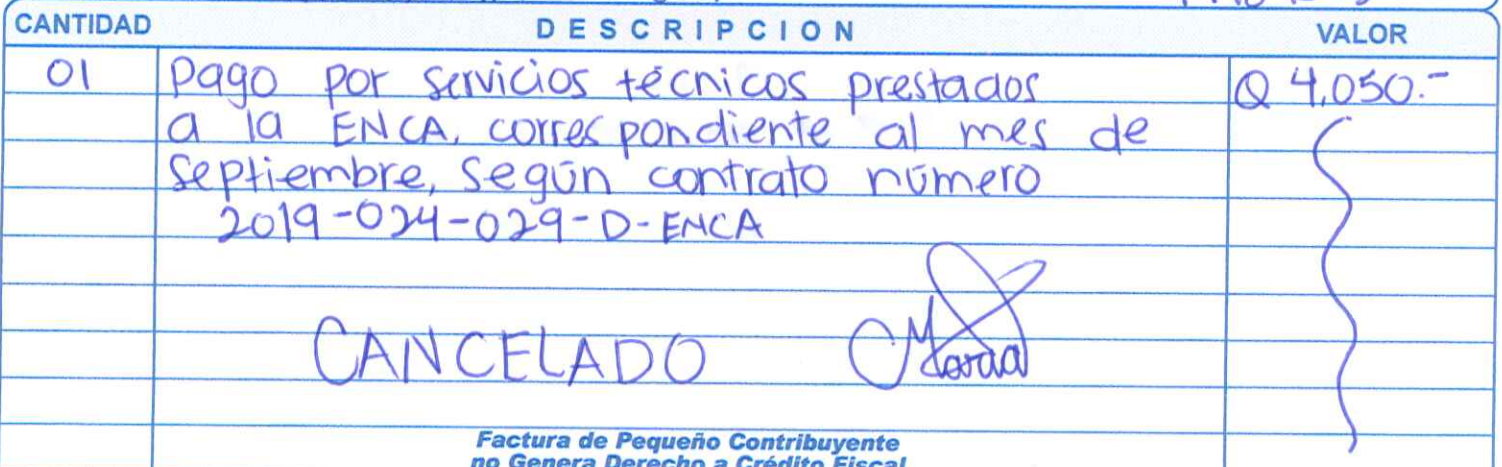 CANTIDAD DESCRIPCION VALOR
01 Pago por servicios técnicos prestados Q 4,050.-
a la ENCA, correspondiente al mes de
Septiembre, Según contrato número
2019-024-029-D-ENCA
CANCELADO
Factura de Pequeño Contribuyente
no Genera Derecho a Crédito Fiscal